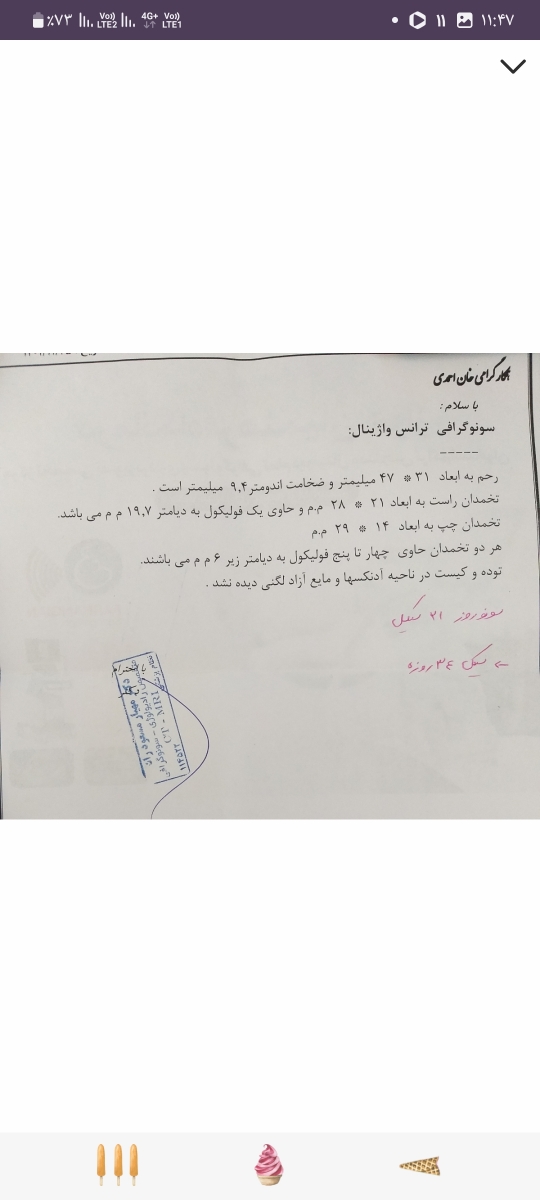 ٪۷۳ Vo) LTE2 4G+ Vo) LTE1 ۱۱ ۱۱:۴۷
همکار گرامی خان احمدی
با سلام:
سونوگرافی ترانس واژینال:
-----
رحم به ابعاد ۳۱ * ۴۷ میلیمتر و ضخامت اندومتر۹,۴ میلیمتر است .
تخمدان راست به ابعاد ۲۱ * ۲۸ م.م و حاوی یک فولیکول به دیامتر ۱۹,۷ م م می باشد.
تخمدان چپ به ابعاد ۱۴ * ۲۹ م.م
هر دو تخمدان حاوی چهار تا پنج فولیکول به دیامتر زیر ۶ م م می باشند.
توده و کیست در ناحیه آدنکسها و مایع آزاد لگنی دیده نشد .
سونو روز ۲۱ سیکل
← سیکل ۳۴ روزه
با احترام
دکتر مهیار مسعود راد
CT - MRI